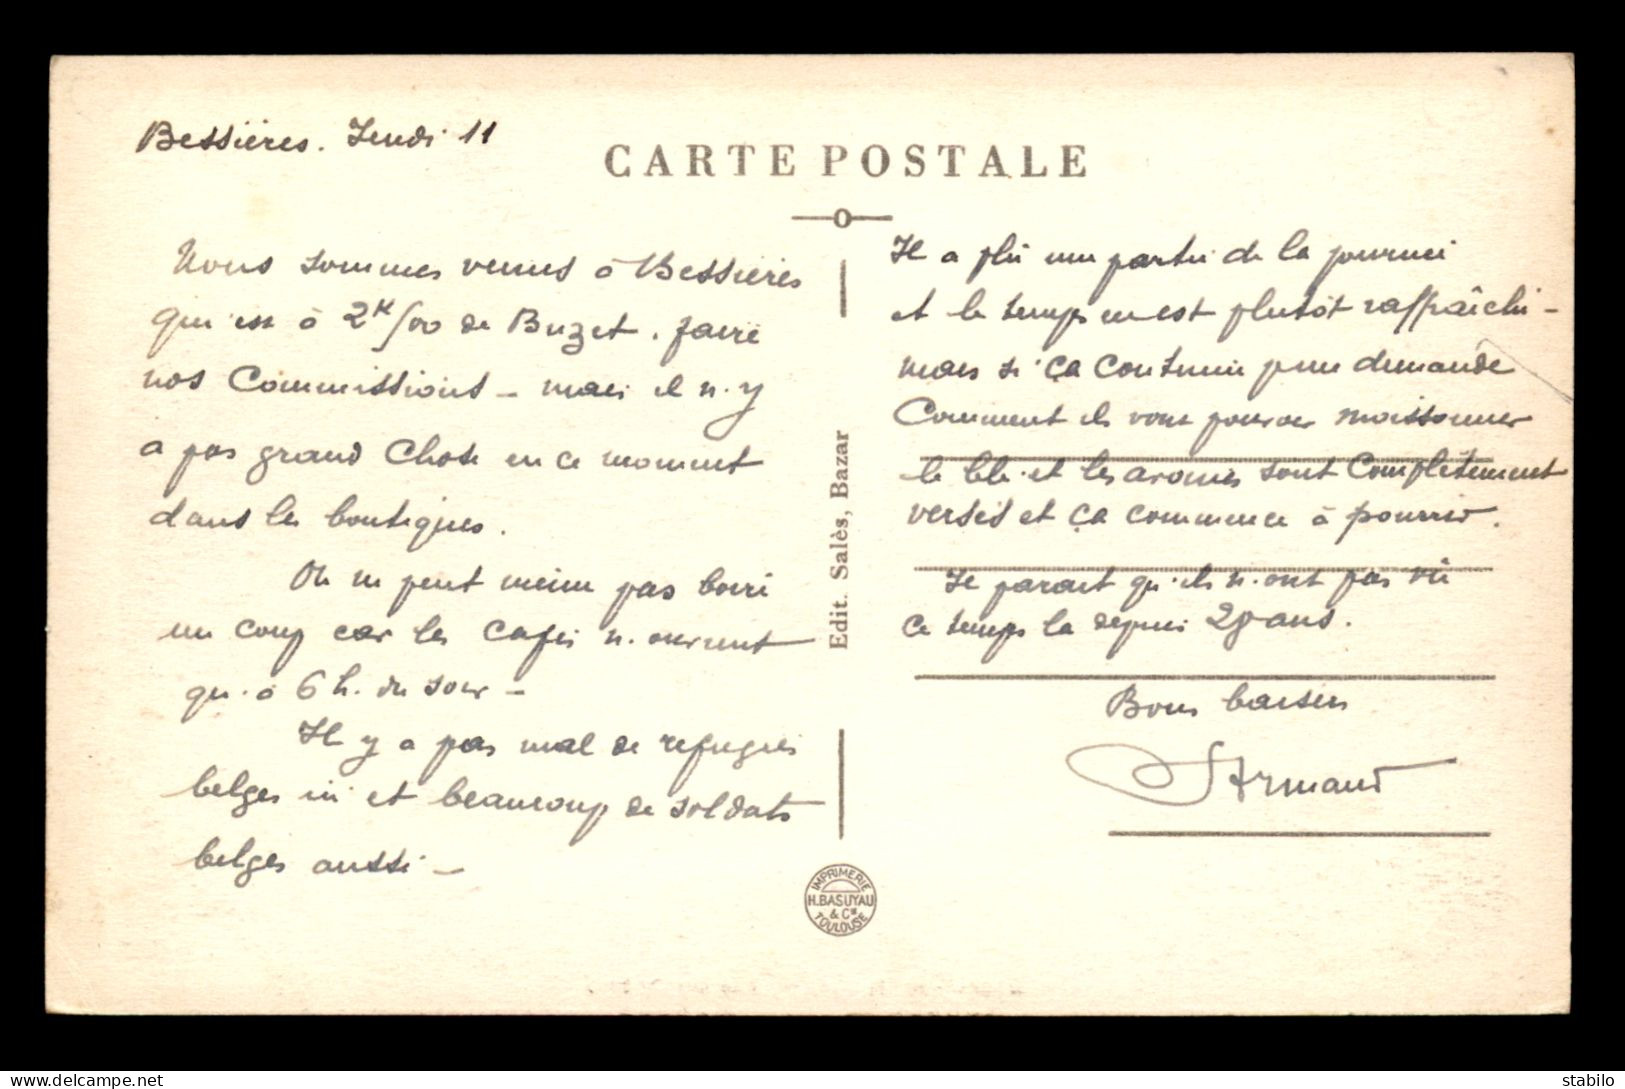 Bessières. Jeudi 11
CARTE POSTALE
Nous sommes venus à Bessières
qui est à 2K500 de Buzet. faire
nos Commissions - mais il n'y
a pas grand Chose en ce moment
dans les boutiques.
On ne peut même pas boire
un coup car les Cafés n'ouvrent
qu'à 6h. du soir -
Il y a pas mal de refugiés
belges ici et beaucoup de soldats
belges aussi -
Edit. Salès, Bazar
Il a plu une partie de la journée
et le temps en est plutôt raffraîchi -
mais si ça continue je me demande
Comment ils vont pouvoir moissonner
le blé et les avoines sont Complètement
versés et ça commence à pourrir.
Il parait qu'ils n'ont pas vu
ce temps la depuis 20 ans.
Bons baisers
Armand
IMPRIMERIE
H. BASUYAU
& Cie
TOULOUSE
delcampe.net
stabilo